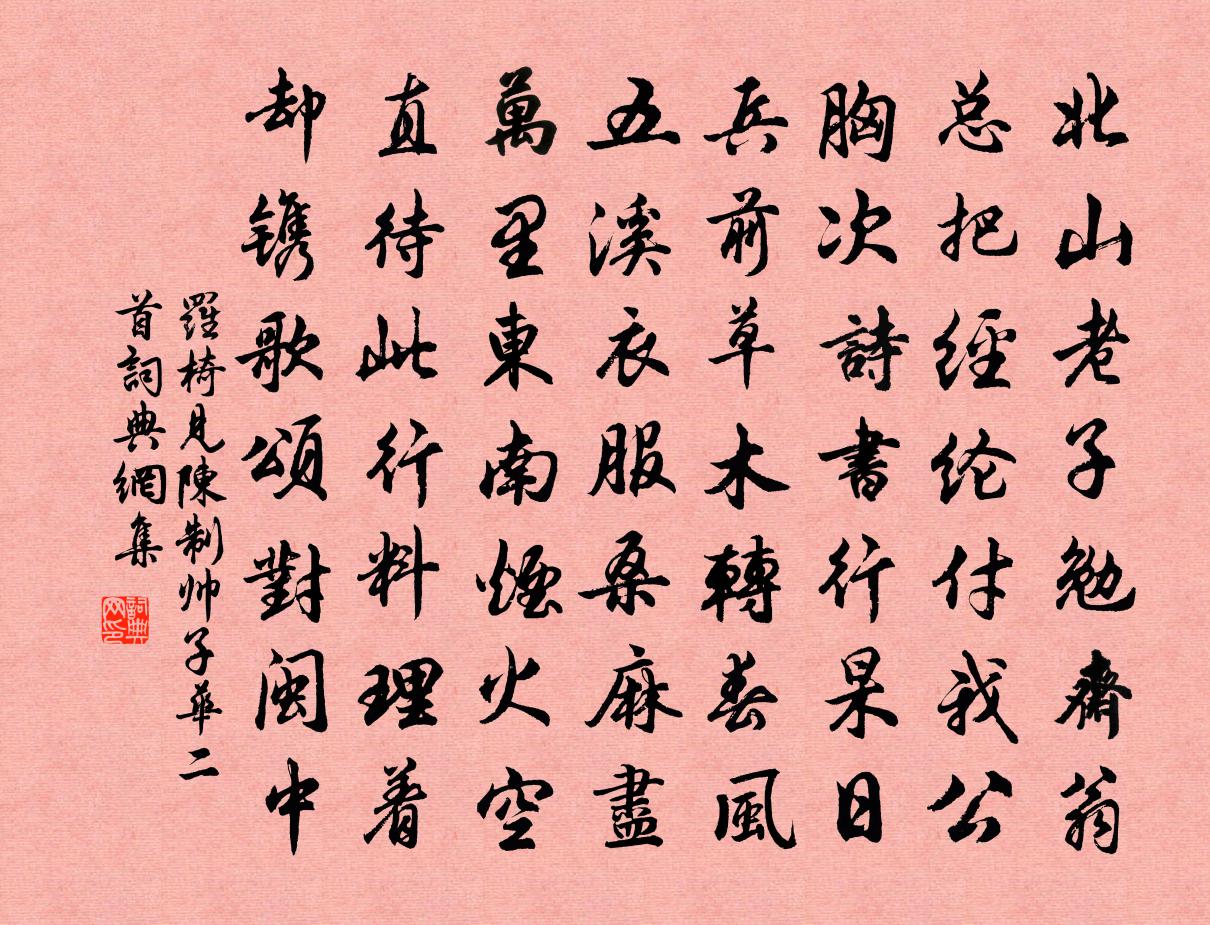 北山老子勉齋翁
总把經纶付我公
胸次詩書行杲日
兵前草木轉春風
五溪衣服桑麻盡
萬里東南煙火空
直待此行料理着
却镌歌頌對闽中
羅椅見陳制帅子華二
首詞典網集
詞典网印